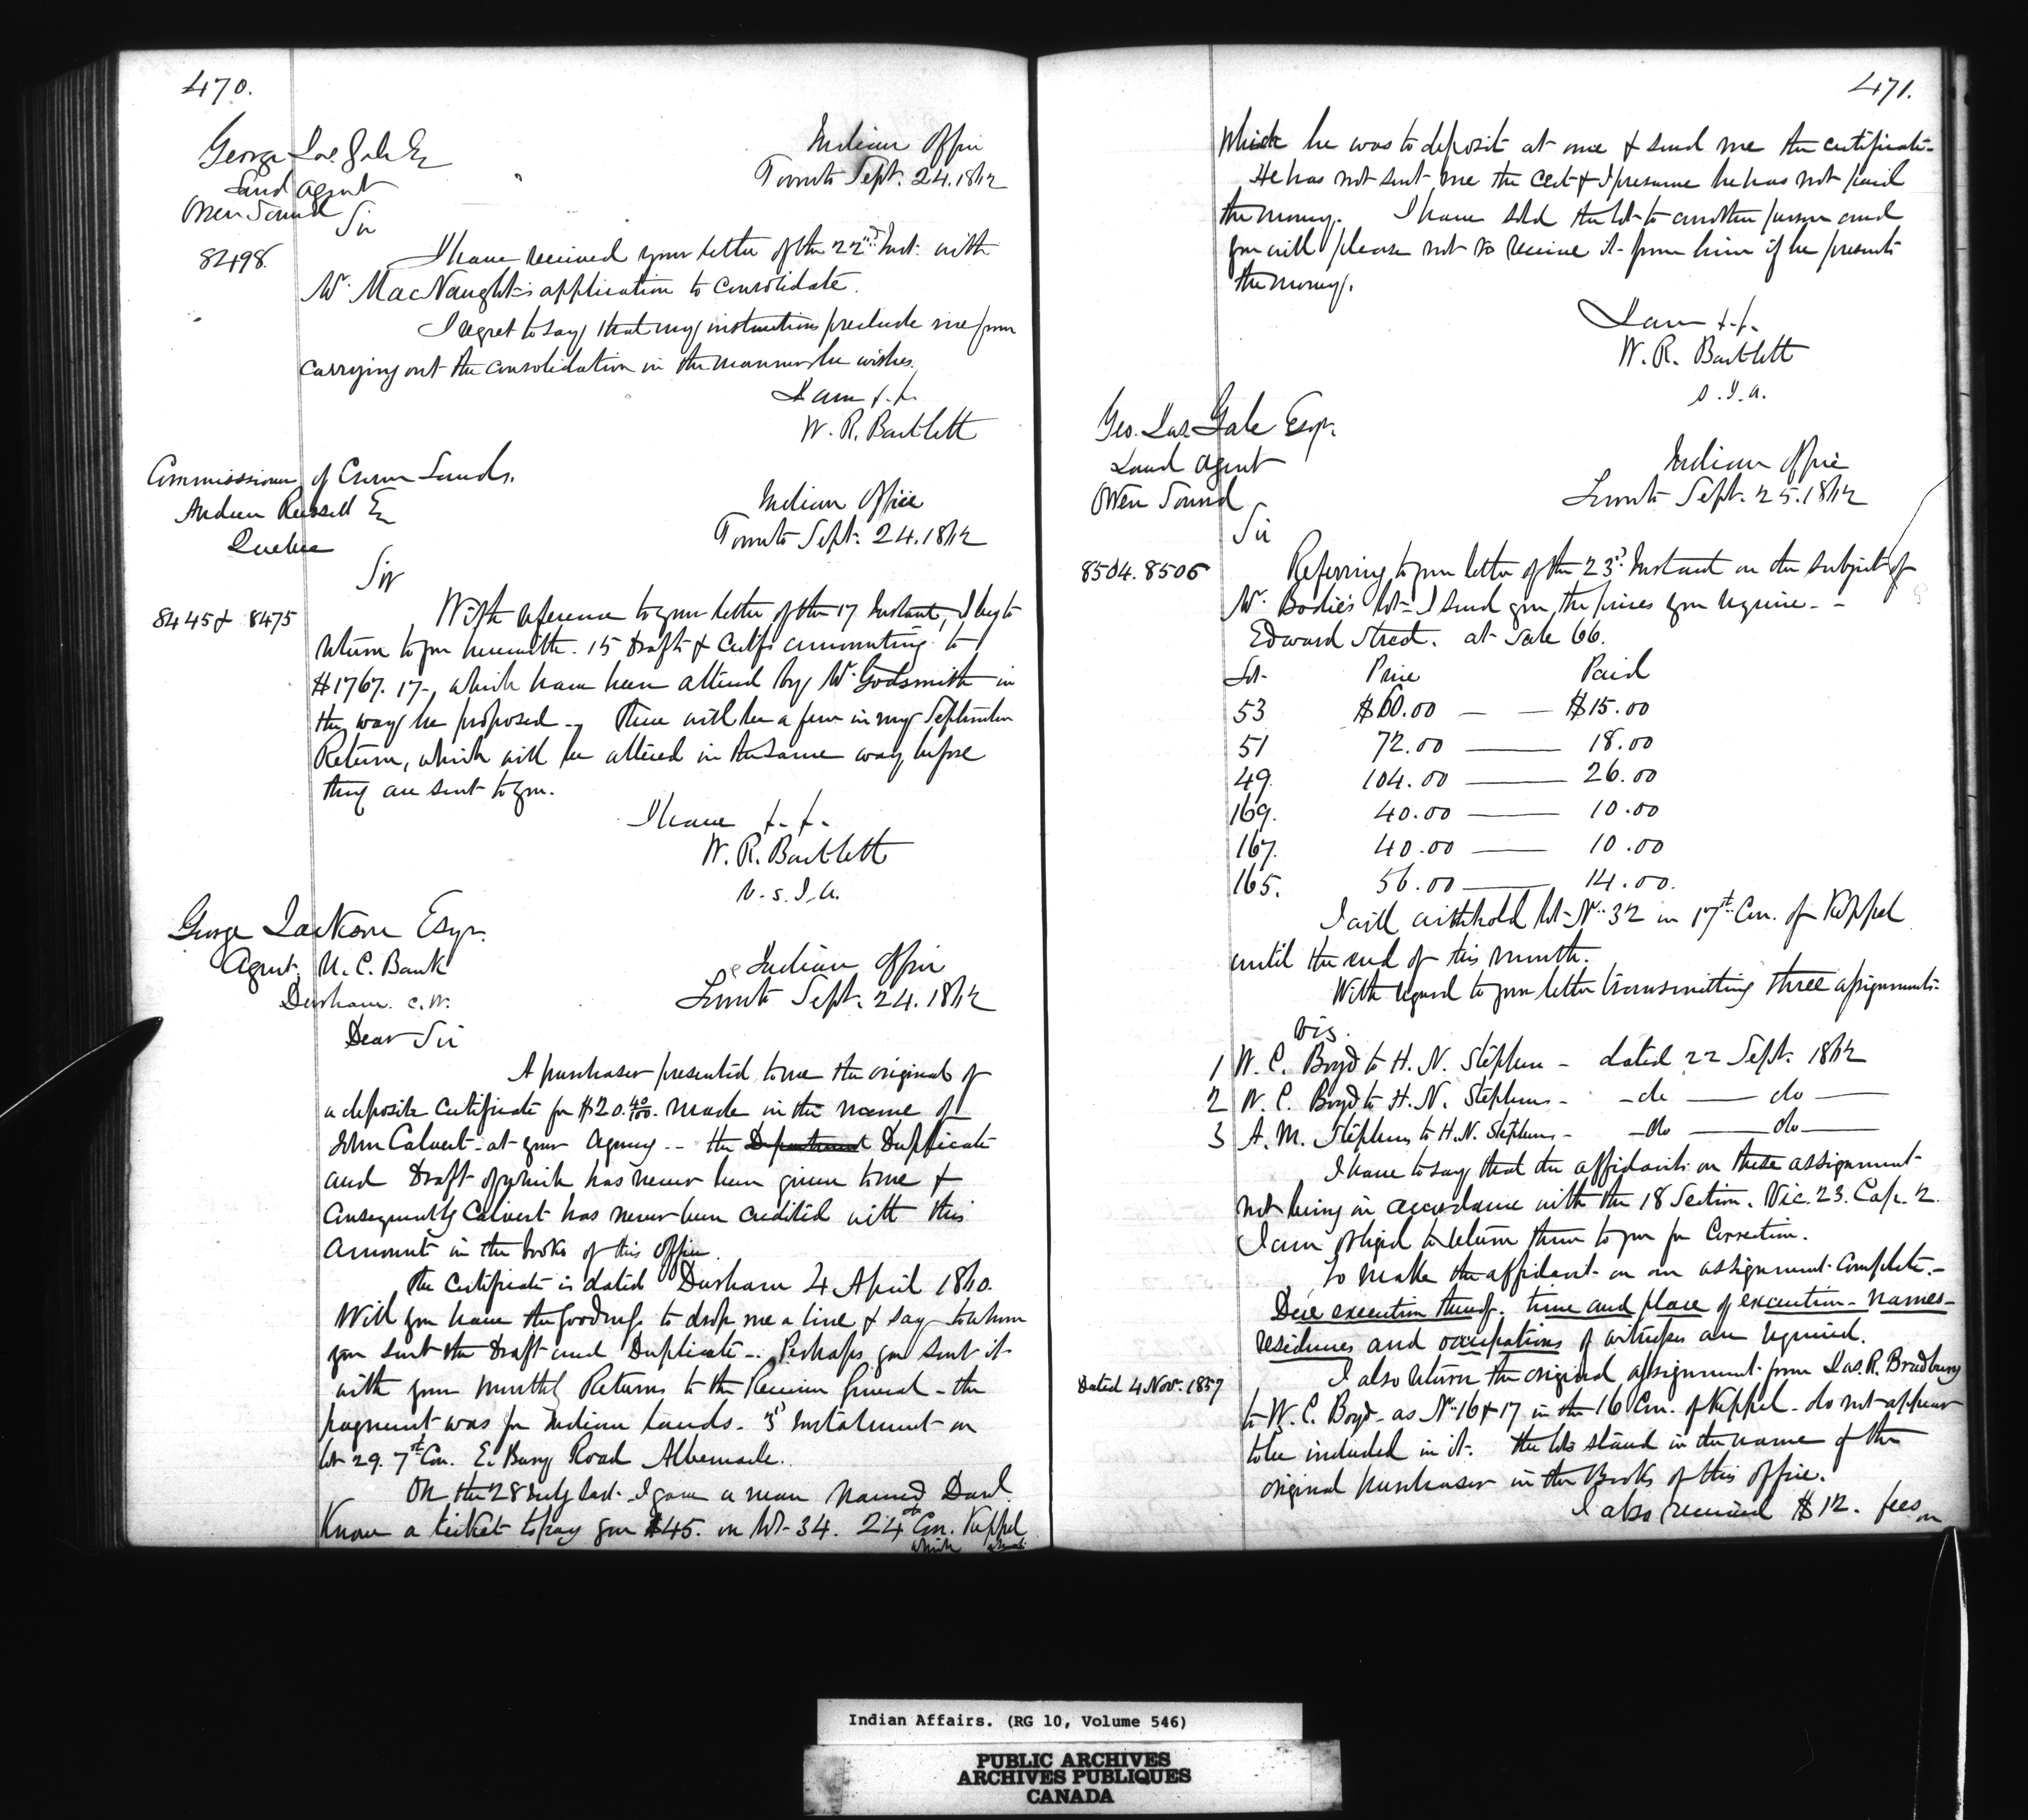 470.
George Jas. Gale Esq
Land Agent
Owen Sound
Indian Office
Toronto Sept. 24. 1862
Sir
8498.
I have received your letter of the 22nd Inst. with
Mr. MacNaught's application to consolidate.
I regret to say that my instructions preclude me from
carrying out the consolidation in the manner he wishes.
I am &.&.
W. R. Bartlett
Commissioner of Crown Lands.
Andrew Russell Esq
Quebec
Indian Office
Toronto Sept. 24. 1862
Sir
8445 & 8475
With reference to your letter of the 17 Instant, I beg to
return to you herewith. 15 Drafts & Certfs amounting to
$1767.17-, which have been altered by Mr. Godsmith in
the way he proposed -. There will be a few in my September
Return, which will be altered in the same way before
they are sent to you.
I have &.&.
W. R. Bartlett
V.S.I.A.
George Jackson Esqr.
Agent, U. C. Bank
Durham. C.W.
Indian Office
Toronto Sept. 24. 1862
Dear Sir
A purchaser presented to me the original of
a deposite Certificate for $20.40/100. made in the name of
John Calvert - at your Agency -- the Department Duplicate
and Draft of which has never been given to me &
Consequently Calvert has never been credited with this
Amount in the books of this Office.
The Certificate is dated Durham 4 April 1860.
Will you have the goodness to drop me a line & say to whom
you sent the Draft and Duplicate -. Perhaps you sent it
with your monthly Returns to the Receiver General - the
payment was for Indian Lands. 3d Instalment on
lot 29. 7th Con. E. Bury Road Albemarle.
On the 28 July last I gave a man named Davd.
Know a ticket to pay you $45. on lot 34. 24th Con. Keppel
which
471.
which he was to deposit at once & send me the certificate-
He has not sent me the Cert & I presume he has not paid
the money. I have sold the lot to another person and
you will please not to receive it from him if he presents
the money.
I am &.&.
W. R. Bartlett
S.I.A.
Geo. Jas. Gale Esqr.
Land Agent
Owen Sound
Indian Office
Toronto Sept. 25. 1862
Sir
8504. 8506
Referring to your letter of the 23d. Instant on the subject of
Mr. Bodie's lots I send you, the prices you require. -
Edward Street. at Sale 66.
Lot Price Paid
53 $60.00 — — $15.00
51 72.00 — 18.00
49. 104.00 — 26.00
169. 40.00 — 10.00
167. 40.00 — 10.00
165. 56.00 — 14.00.
I will withhold lot No. 32 in 17th Con. of Keppel
until the end of this month.
With regard to your letter transmitting three assignments-
viz.
1 W. C. Boyd to H. N. Stephens - dated 22 Sept. 1862
2 W. C. Boyd to H. N. Stephens - - do — do —
3 A. M. Stephens to H. N. Stephens - - do — do —
I have to say that the affidavits on these assignment
not being in accordance with the 18 Section. Vic. 23. Cap. 2.
I am obliged to return them to you for Correction.
To make the affidavit on an assignment Complete.-
Due execution thereof. time and place of execution - names -
residences and occupations of witnesses are required.
Dated 4 Nov. 1857
I also return the original assignment from Jas. R. Bradbury
to W. C. Boyd - as No. 16 & 17 in the 16 Con. of Keppel - do not appear
to be included in it. The lots stand in the name of the
original purchaser in the Books of this office.
I also received $12. fees on
Indian Affairs. (RG 10, Volume 546)
PUBLIC ARCHIVES
ARCHIVES PUBLIQUES
CANADA